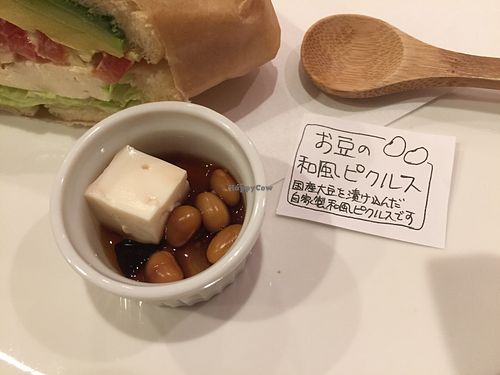 お豆の
和風ピクルス
国産大豆を漬け込んだ
自家製和風ピクルスです
HappyCow